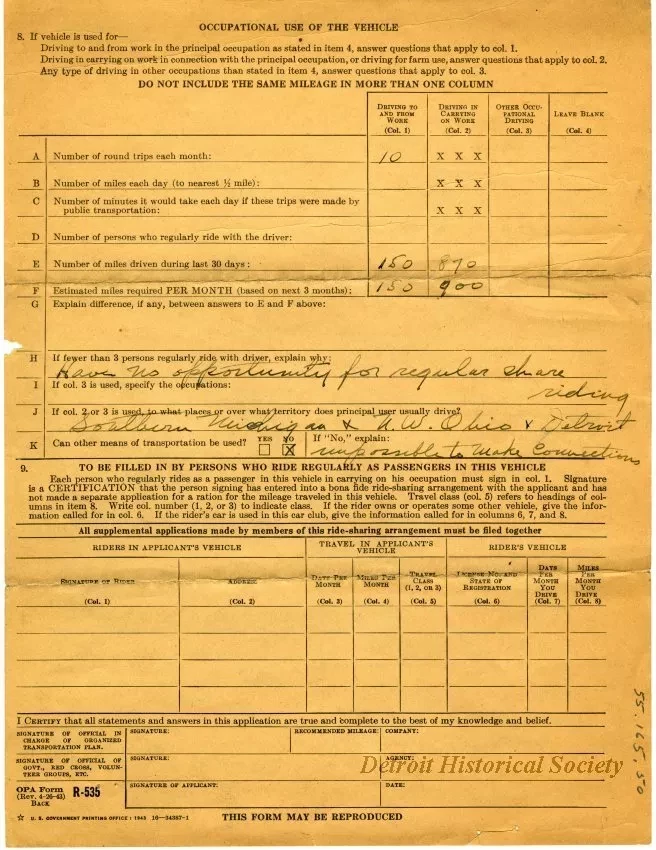 OCCUPATIONAL USE OF THE VEHICLE
8. If vehicle is used for—
Driving to and from work in the principal occupation as stated in item 4, answer questions that apply to col. 1.
Driving in carrying on work in connection with the principal occupation, or driving for farm use, answer questions that apply to col. 2.
Any type of driving in other occupations than stated in item 4, answer questions that apply to col. 3.
DO NOT INCLUDE THE SAME MILEAGE IN MORE THAN ONE COLUMN
DRIVING TO AND FROM WORK (Col. 1)
DRIVING IN CARRYING ON WORK (Col. 2)
OTHER OCCUPATIONAL DRIVING (Col. 3)
LEAVE BLANK (Col. 4)
A Number of round trips each month: 10 X X X
B Number of miles each day (to nearest ½ mile): X X X
C Number of minutes it would take each day if these trips were made by
public transportation: X X X
D Number of persons who regularly ride with the driver:
E Number of miles driven during last 30 days: 150 870
F Estimated miles required PER MONTH (based on next 3 months): 150 900
G Explain difference, if any, between answers to E and F above:
H If fewer than 3 persons regularly ride with driver, explain why:
Have no opportunity for regular share
riding
I If col. 3 is used, specify the occupations:
J If col. 2 or 3 is used, to what places or over what territory does principal user usually drive?
Southern Michigan & N.W. Ohio & Detroit
K Can other means of transportation be used? YES NO X If "No," explain:
impossible to Make Connections
9. TO BE FILLED IN BY PERSONS WHO RIDE REGULARLY AS PASSENGERS IN THIS VEHICLE
Each person who regularly rides as a passenger in this vehicle in carrying on his occupation must sign in col. 1. Signature
is a CERTIFICATION that the person signing has entered into a bona fide ride-sharing arrangement with the applicant and has
not made a separate application for a ration for the mileage traveled in this vehicle. Travel class (col. 5) refers to headings of col-
umns in item 8. Write col. number (1, 2, or 3) to indicate class. If the rider owns or operates some other vehicle, give the infor-
mation called for in col. 6. If the rider's car is used in this car club, give the information called for in columns 6, 7, and 8.
All supplemental applications made by members of this ride-sharing arrangement must be filed together
RIDERS IN APPLICANT'S VEHICLE
TRAVEL IN APPLICANT'S VEHICLE
RIDER'S VEHICLE
SIGNATURE OF RIDER (Col. 1)
ADDRESS (Col. 2)
DAYS PER MONTH (Col. 3)
MILES PER MONTH (Col. 4)
TRAVEL CLASS (1, 2, OR 3) (Col. 5)
LICENSE NO. AND STATE OF REGISTRATION (Col. 6)
DAYS PER MONTH YOU DRIVE (Col. 7)
MILES PER MONTH YOU DRIVE (Col. 8)
I CERTIFY that all statements and answers in this application are true and complete to the best of my knowledge and belief.
SIGNATURE OF OFFICIAL IN CHARGE OF ORGANIZED TRANSPORTATION PLAN.
SIGNATURE: RECOMMENDED MILEAGE: COMPANY:
SIGNATURE OF OFFICIAL OF GOVT., RED CROSS, VOLUNTEER GROUPS, ETC.
SIGNATURE: AGENCY:
Detroit Historical Society
OPA Form R-535
(Rev. 4-26-43)
BACK
SIGNATURE OF APPLICANT: DATE:
☆ U. S. GOVERNMENT PRINTING OFFICE : 1943 16—34387-1
THIS FORM MAY BE REPRODUCED
55.165.50